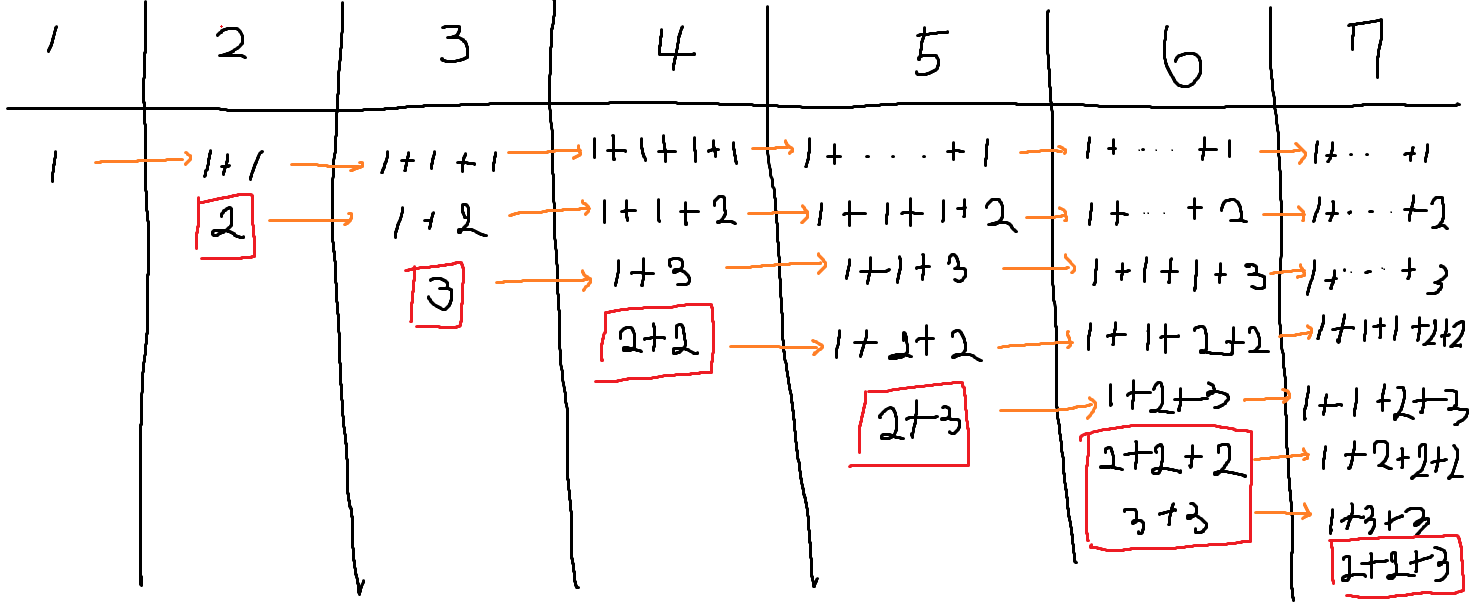 1 2 3 4 5 6 7
1 → 1+1 → 1+1+1 → 1+1+1+1 → 1+...+1 → 1+...+1 → 1+..+1
2 → 1+2 → 1+1+2 → 1+1+1+2 → 1+..+2 → 1+...+2
3 → 1+3 → 1+1+3 → 1+1+1+3 → 1+...+3
2+2 → 1+2+2 → 1+1+2+2 → 1+1+1+2+2
2+3 → 1+2+3 → 1+1+2+3
2+2+2 → 1+2+2+2
3+3 → 1+3+3
2+2+3